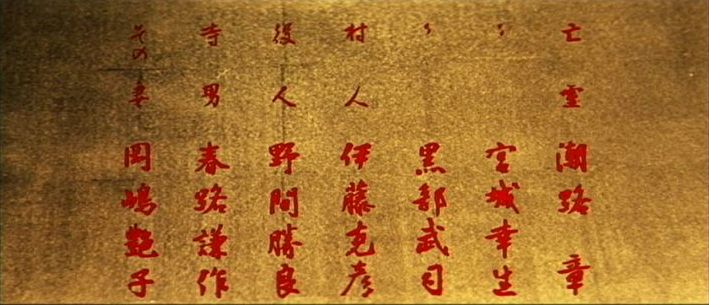 亡霊 潮路 章
〃 宮城幸生
〃 黒部武司
村人 伊藤克彦
役人 野間勝良
寺男 春路謙作
その妻 岡嶋艶子